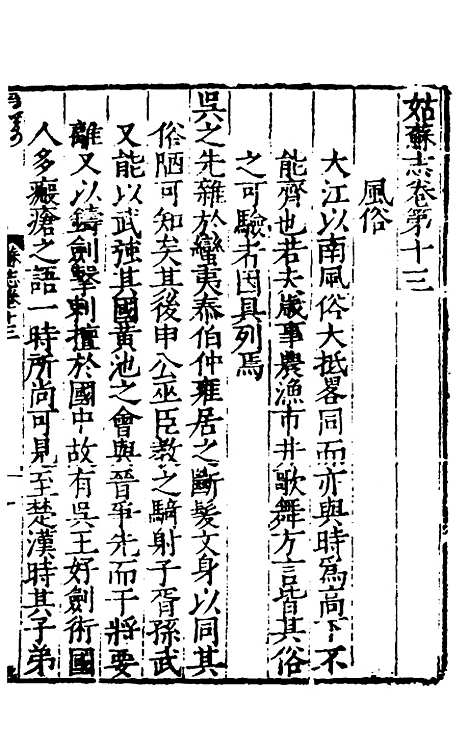 姑蘇志卷第十三
風俗
大江以南風俗大抵畧同而亦與時爲高下不
能齊也若夫歲事農漁市井歌舞方言皆其俗
之可驗者因具列焉
吳之先雜於蠻夷泰伯仲雍居之斷髮文身以同其
俗陋可知矣其後申公巫臣教之騎射子胥孫武
又能以武強其國黃池之會與晉爭先而干將要
離又以鑄劍擊刺擅於國中故有吳王好劍術國
人多瘢瘡之語一時所尚可見至楚漢時其子弟
蘇志卷十三